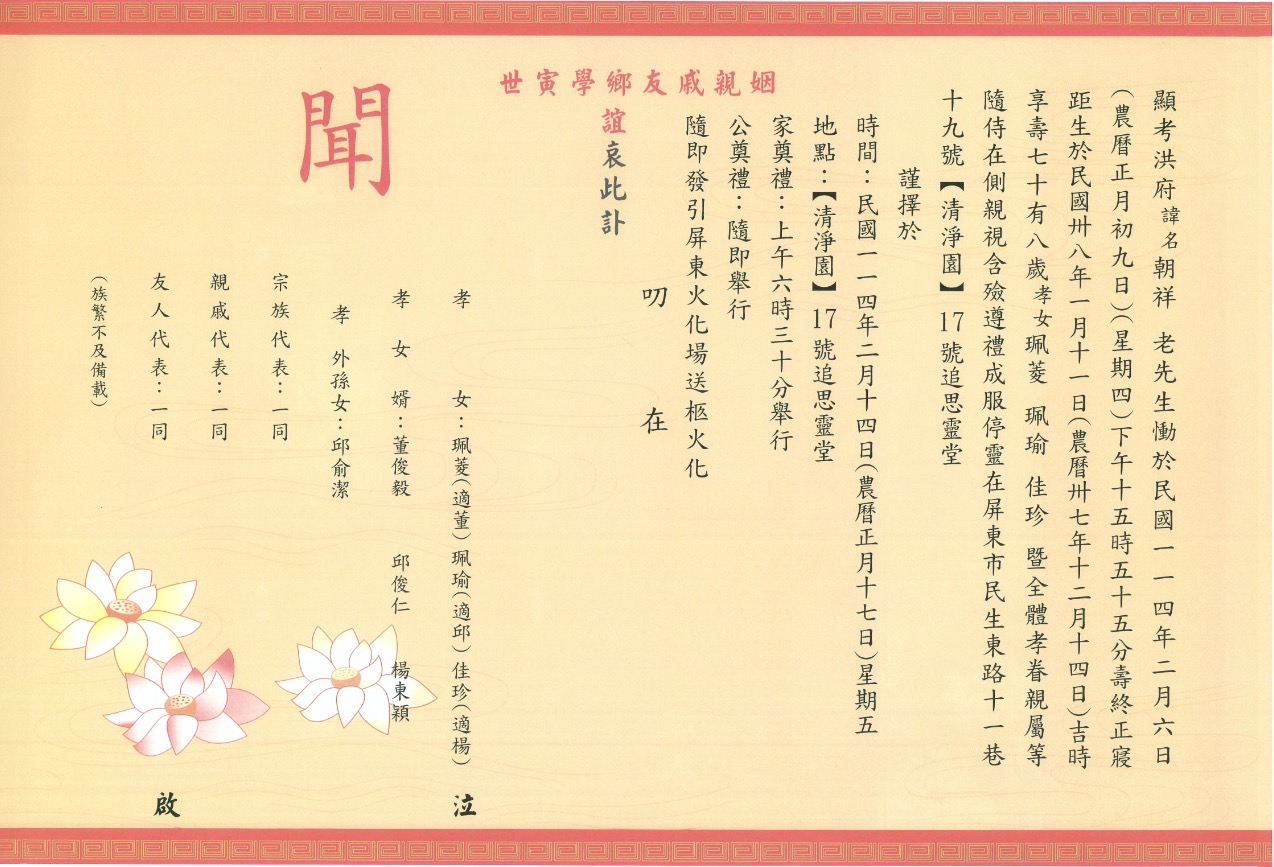 顯考洪府諱名朝祥 老先生慟於民國一一四年二月六日
(農曆正月初九日)(星期四)下午十五時五十五分壽終正寢
距生於民國卅八年一月十一日(農曆卅七年十二月十四日)吉時
享壽七十有八歲孝女珮菱 珮瑜 佳珍 暨全體孝眷親屬等
隨侍在側親視含殮遵禮成服停靈在屏東市民生東路十一巷
十九號【清淨園】17號追思靈堂
謹擇於
時間：民國一一四年二月十四日(農曆正月十七日)星期五
地點：【清淨園】17號追思靈堂
家奠禮：上午六時三十分舉行
公奠禮：隨即舉行
隨即發引屏東火化場送柩火化
叨 在
姻親戚友鄉學寅世
誼哀此訃
聞
孝 女：珮菱(適董)珮瑜(適邱)佳珍(適楊) 泣
孝 女 婿：董俊毅 邱俊仁 楊東穎
孝 外孫女：邱俞潔
宗族代表：一同
親戚代表：一同
友人代表：一同 啟
(族繁不及備載)